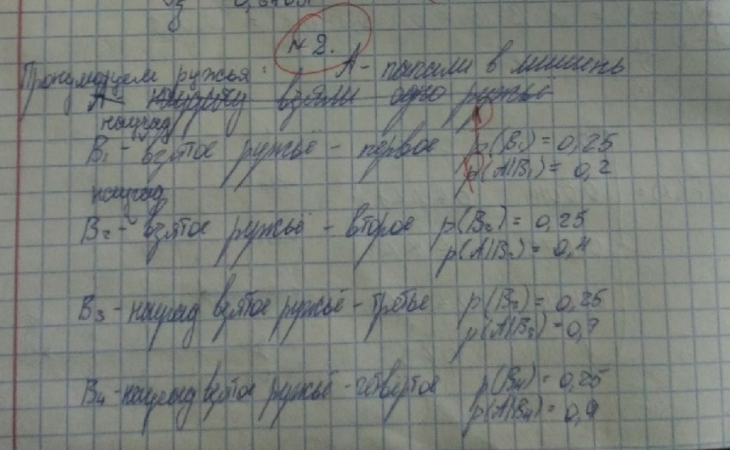 № 2.
Пронумеруем ружья: А - попали в мишень
А наудачу взяли одно ружьё
наугад
B₁ - взятое ружьё - первое p(B₁) = 0,25
p(A|B₁) = 0,2
наугад
B₂ - взятое ружьё - второе p(B₂) = 0,25
p(A|B₂) = 0,4
B₃ - наугад взятое ружьё - третье p(B₃) = 0,25
p(A|B₃) = 0,7
B₄ - наугад взятое ружьё - четвертое p(B₄) = 0,25
p(A|B₄) = 0,9